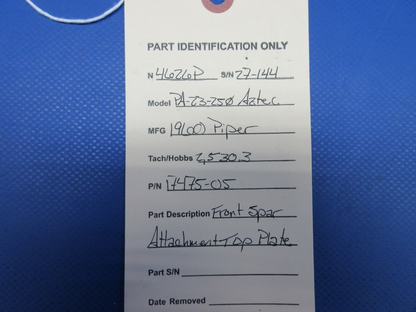 PART IDENTIFICATION ONLY
N 4626P S/N 27-144
Model PA-23-250 Aztec
MFG 1960 Piper
Tach/Hobbs 2,530.3
P/N 17475-05
Part Description Front Spar
Attachment Top Plate
Part S/N
Date Removed